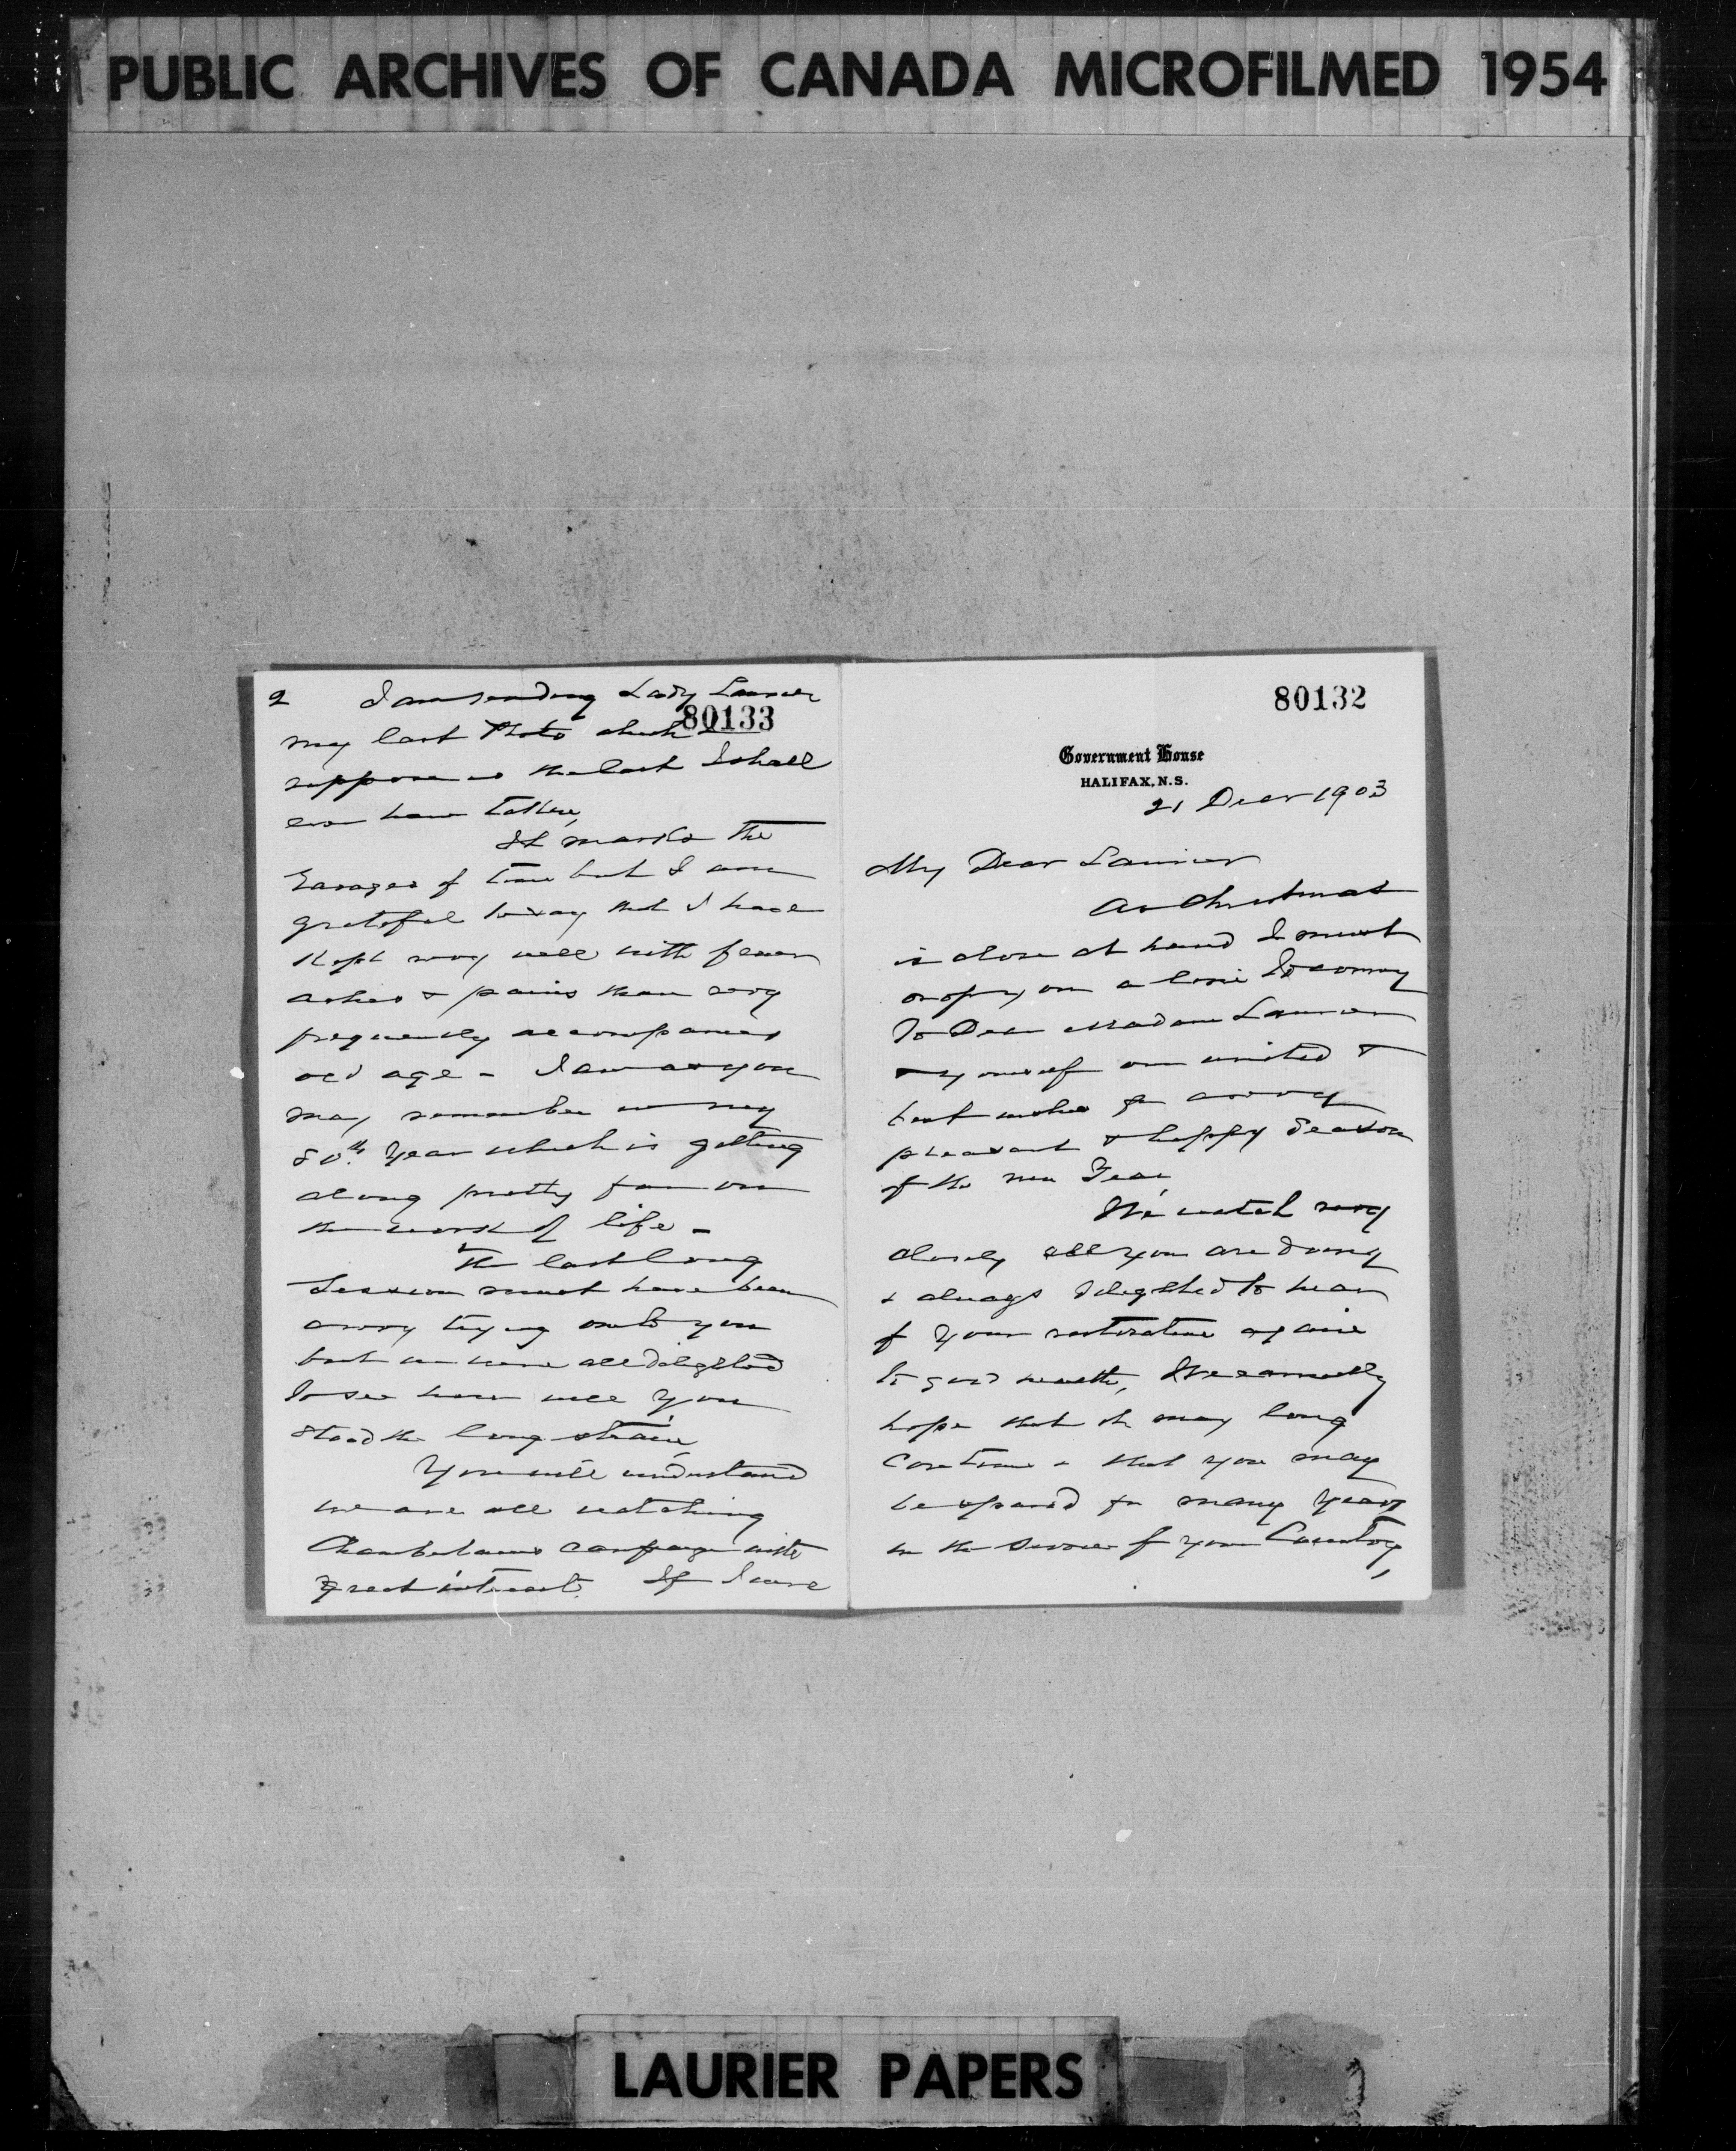 PUBLIC ARCHIVES OF CANADA MICROFILMED 1954
80132
Government House
HALIFAX, N.S.
21 Decr 1903
My Dear Laurier
As Christmas
is close at hand I must
drop you a line to convey
To Dear Madam Laurier
& yourself our united &
best wishes for a very
pleasant & happy Season
of the new Year,
We watch very
closely all you are doing
& always delighted to hear
of your restoration again
to good health, We earnestly
hope that it may long
Continue & that you may
be spared for many years
in the service of your Country,
80133
2 I am sending Lady Laurier
my last Photo which I
suppose is the last I shall
ever have taken,
It marks the
ravages of time but I am
grateful to say that I have
Kept very well with fewer
aches & pains than very
frequently accompanies
old age - I am as you
may remember in my
80th. Year which is getting
along pretty far on
the work of life -
The last long
Session must have been
a very trying one to you
but we were all delighted
to see how well you
stood the long strain,
You will understand
we are all watching
Chamberlains campaign with
great interest. If I were
LAURIER PAPERS